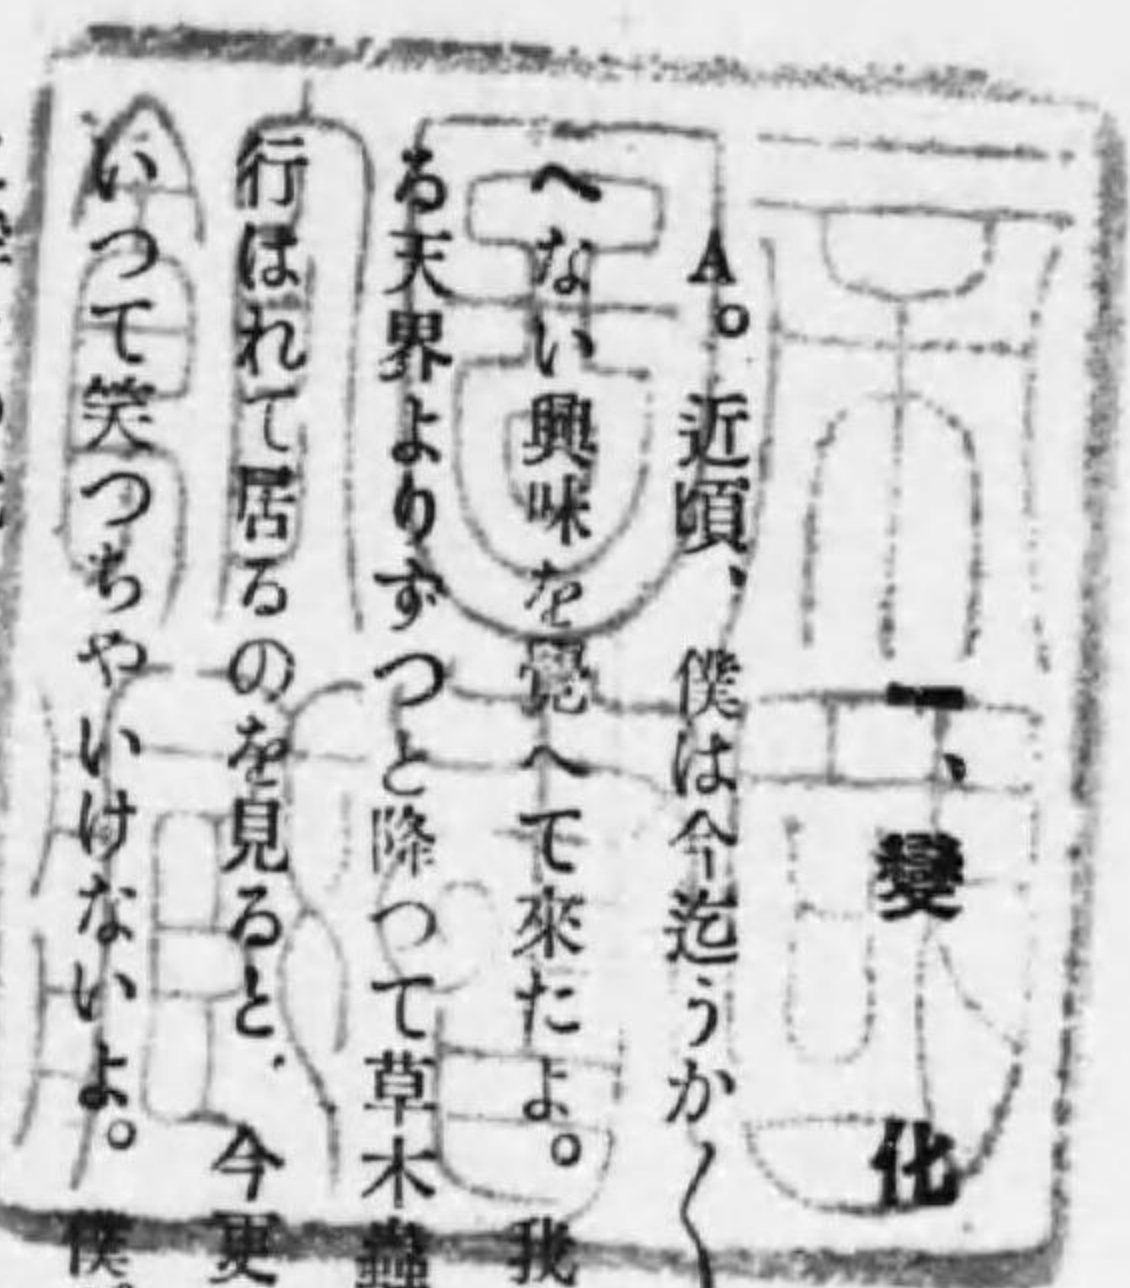 一、變化
A。近頃、僕は今迄うか〱
へない興味を覺へて來たよ。我
る天界よりずつと降つて草木蟲
行はれて居るのを見ると、今更
いつて笑つちやいけないよ。僕